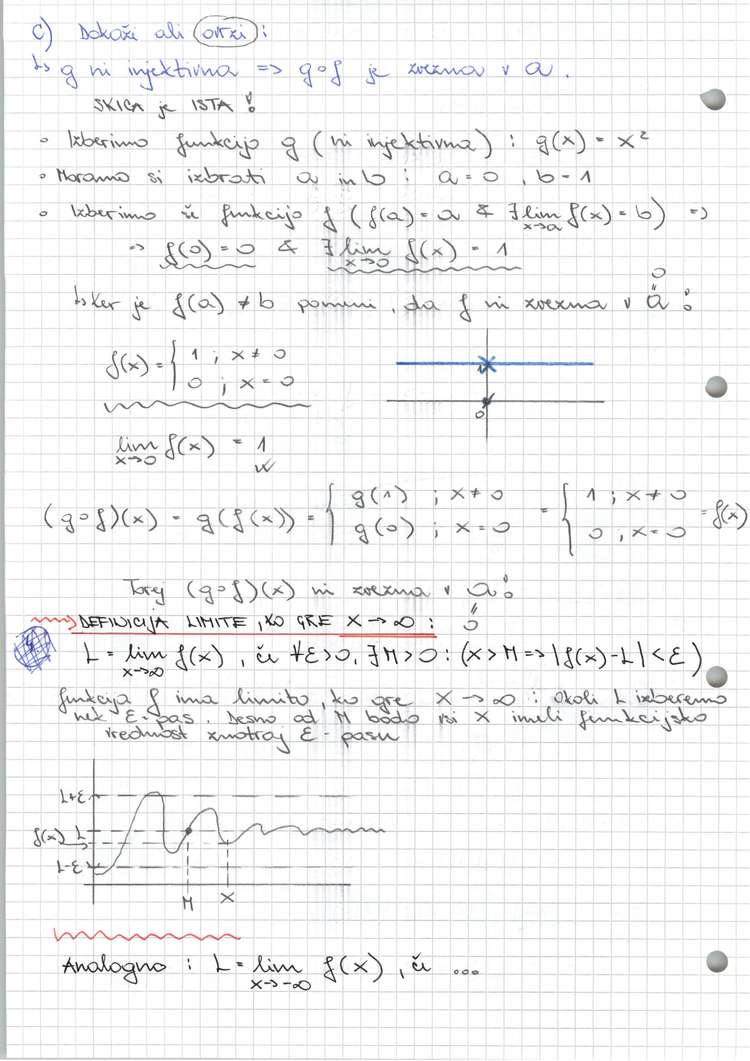 c) Dokaži ali ovrzi:
↳ g ni injektivna => g∘f je zvezna v a.
SKICA je ISTA!
• Izberimo funkcijo g (ni injektivna): g(x) = x²
• Moramo si izbrati a in b: a=0, b=1
• Izberimo še funkcijo f (f(a)=a & ∃lim x→a f(x)=b) =>
=> f(0)=0 & ∃lim x→0 f(x) = 1
↳ Ker je f(a) ≠ b pomeni, da f ni zvezna v a = 0!
f(x) = { 1 ; x ≠ 0
0 ; x = 0
1
0
lim x→0 f(x) = 1
(g∘f)(x) = g(f(x)) = { g(1) ; x≠0 = { 1 ; x≠0 = f(x)
g(0) ; x=0 0 ; x=0
Torej (g∘f)(x) ni zvezna v a = 0!
DEFINICIJA LIMITE, KO GRE X→∞:
L = lim x→∞ f(x), če ∀ε>0, ∃M>0: (x>M => |f(x)-L|<ε)
funkcija f ima limito, ko gre x→∞: Okoli L izberemo
nek ε-pas. Desno od M bodo vsi x imeli funkcijsko
vrednost znotraj ε-pasu
L+ε
L
f(x)
L-ε
M x
Analogno: L = lim x→-∞ f(x), če ...